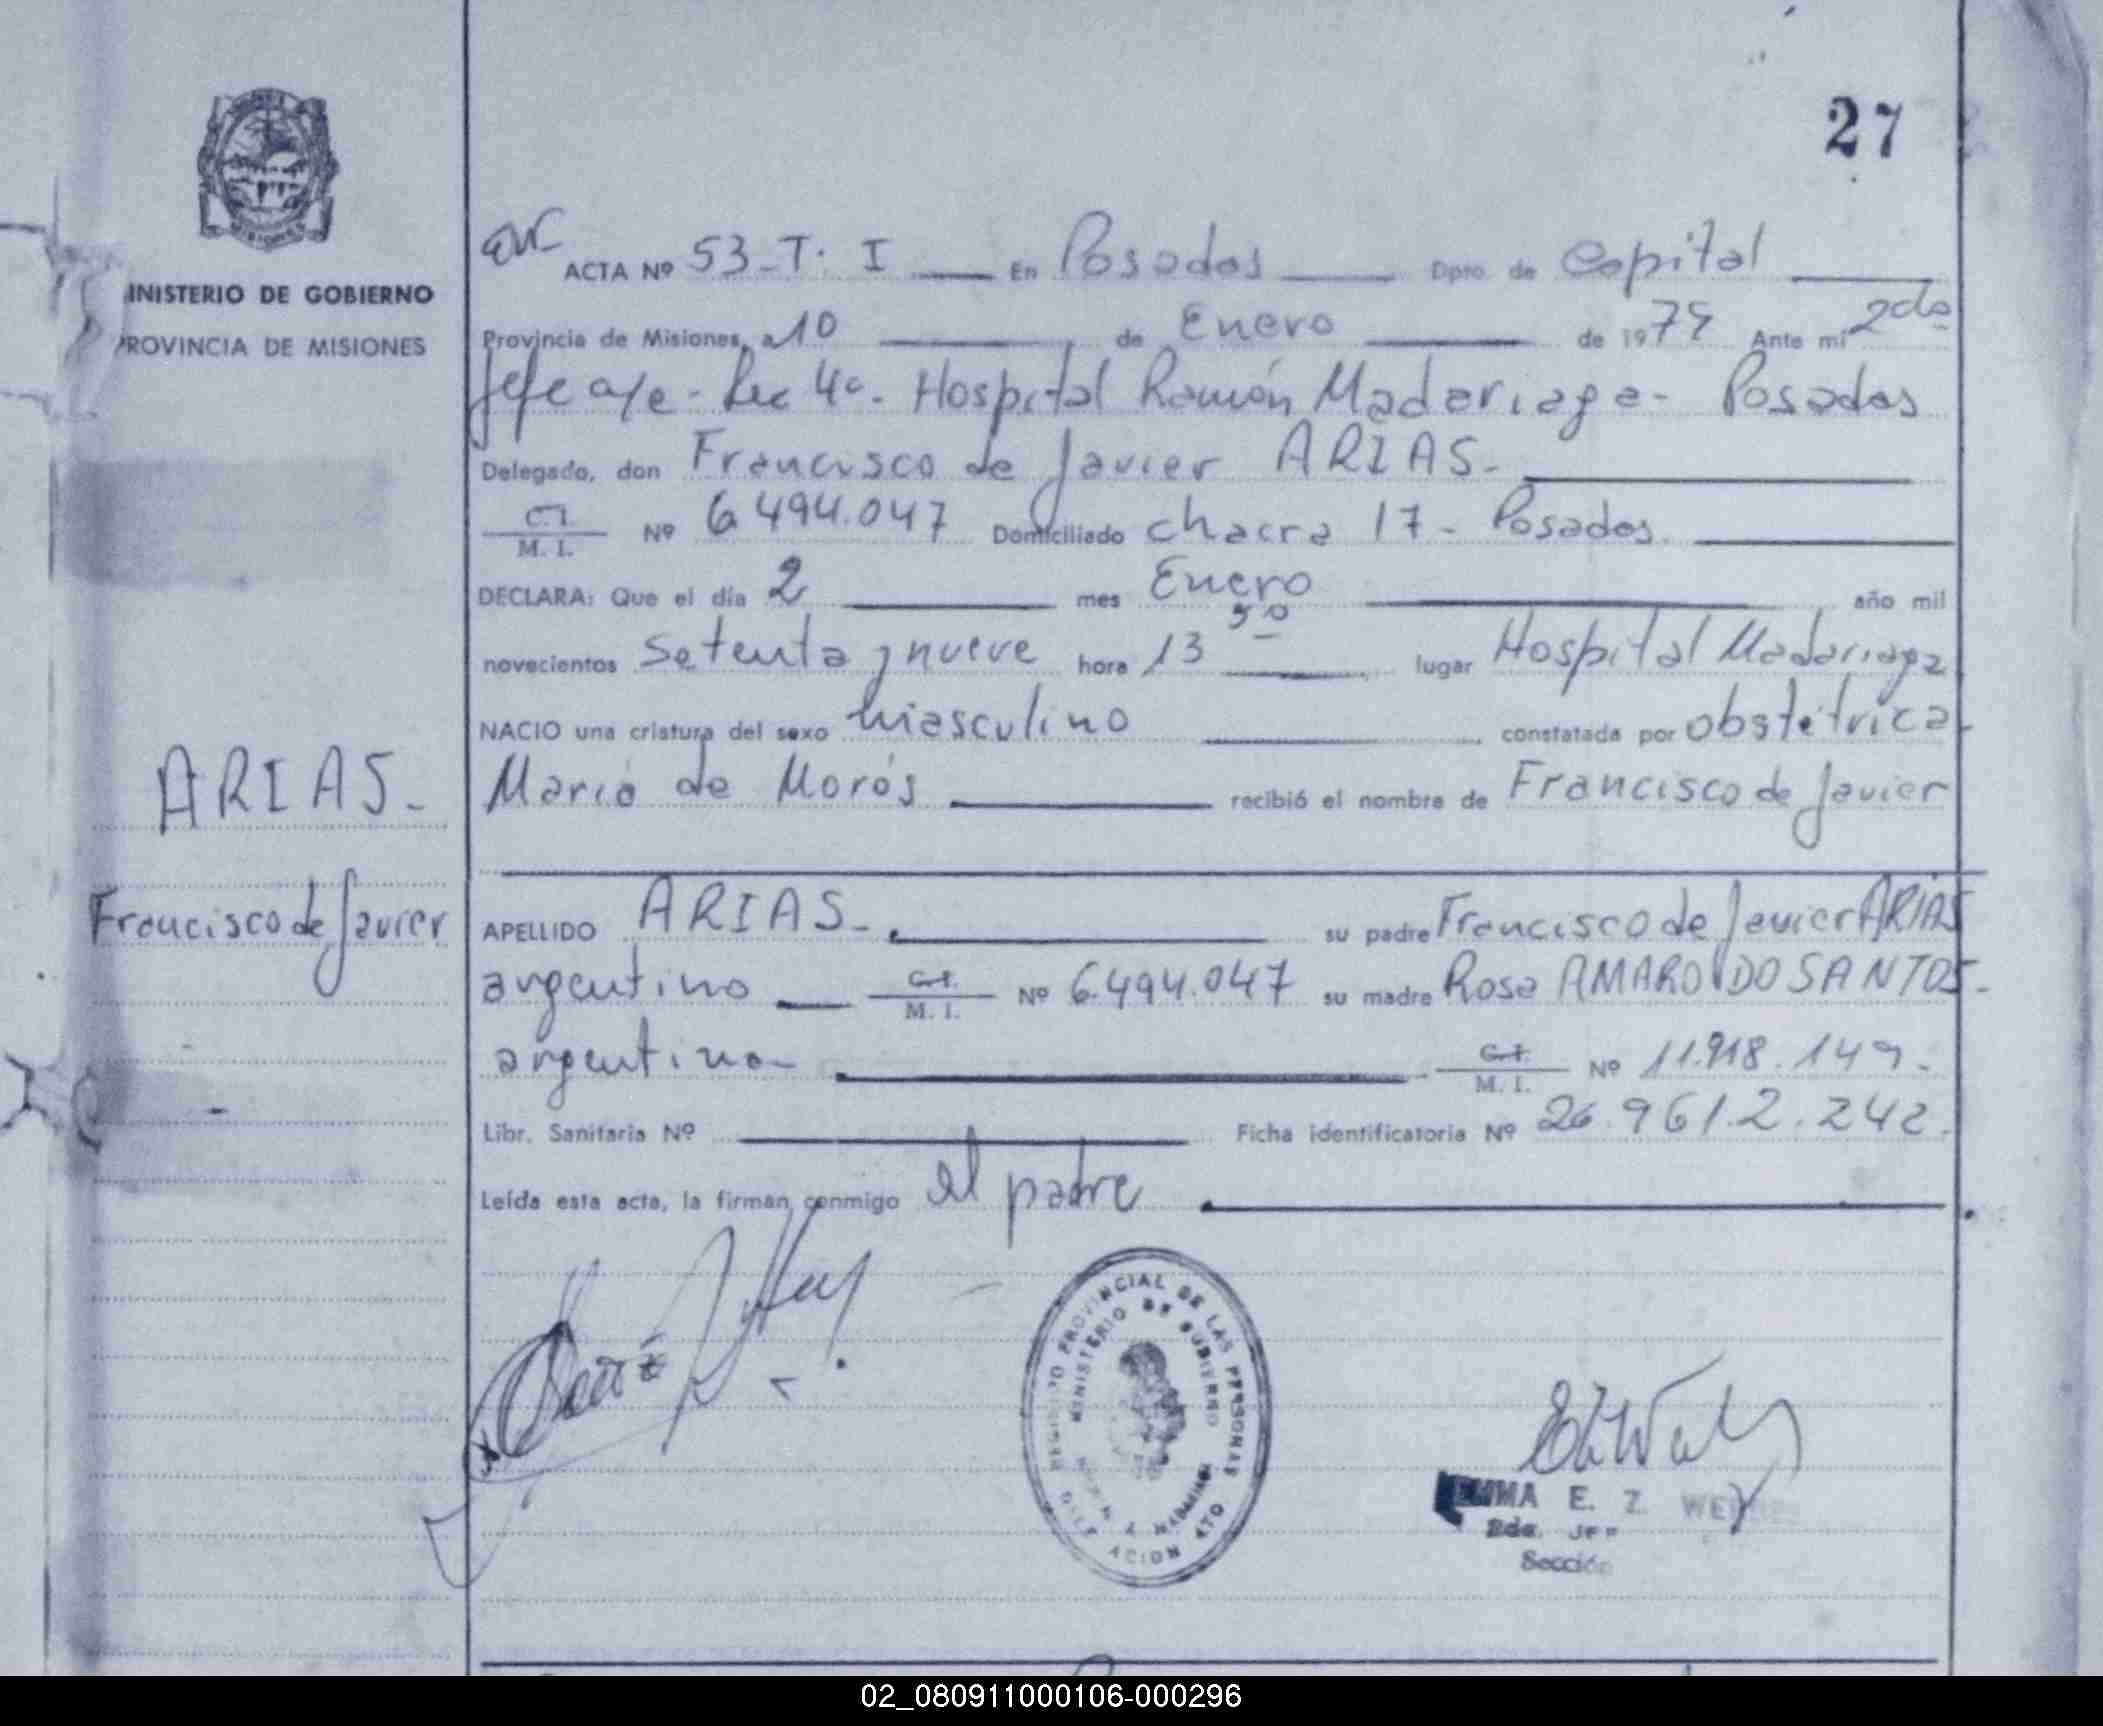 27
MINISTERIO DE GOBIERNO
PROVINCIA DE MISIONES
ACTA Nº 53-T. I En Posadas Dpto. de Capital
Provincia de Misiones, a 10 de Enero de 1979 Ante mi 2da
Jefe a/c - Sec 4a. Hospital Ramón Madariaga - Posadas
Delegado, don Francisco de Javier ARIAS-
C.I. M. I. Nº 6.494.047 Domiciliado chacra 17 - Posadas.
DECLARA: Que el día 2 mes Enero año mil
novecientos setenta y nueve hora 13 30 lugar Hospital Madariaga
NACIO una criatura del sexo masculino constatada por obstétrica
María de Morós recibió el nombre de Francisco de Javier
ARIAS-
Francisco de Javier
APELLIDO ARIAS- su padre Francisco de Javier ARIAS
argentino C.I. M. I. Nº 6.494.047 su madre Rosa AMARO DO SANTOS-
argentina- C.I. M. I. Nº 11.918.149.
Libr. Sanitaria Nº Ficha identificatoria Nº 26.961.2.242.
Leída esta acta, la firman conmigo el padre
REGISTRO PROVINCIAL DE LAS PERSONAS
MINISTERIO DE GOBIERNO
EMMA E. Z. WE
2da. JEF
Sección
02_080911000106-000296